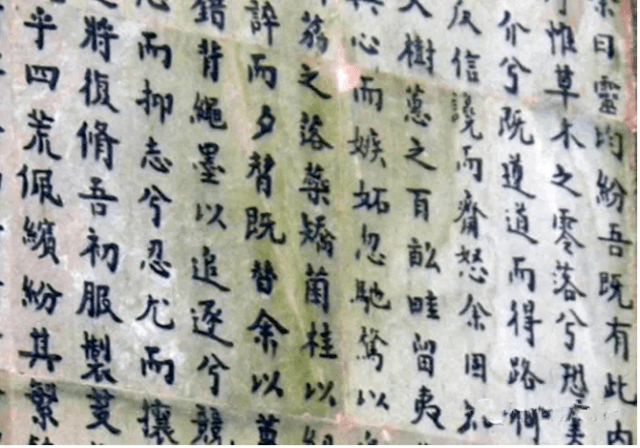 曰靈均紛吾既有此内
惟草木之零落兮恐
介兮既遵道而得路何
反信讒而齋怒余固知
樹蕙之百畝畦留夷
心而嫉妬忽馳騖以
荔之落蘂矯菌桂以
誶而夕替既替余以蕙
錯背繩墨以追逐兮競
心而抑志兮忍尤而攘
將復脩吾初服製芰
乎四荒佩繽紛其繁